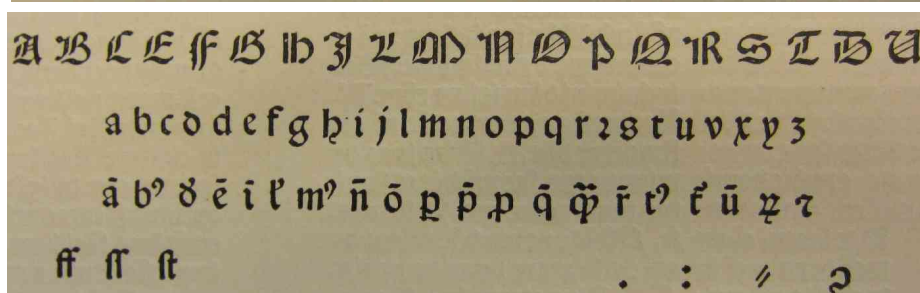 A B C E F G H J L M N O P Q R S T D U
a b c d d e f g h i j l m n o p q r ꝛ s t u v x y z
ā bꝰ ē ī mꝰ n̄ ō ꝑ p̄ ꝓ q̄ r̄ tꝰ ū ⁊
ff ſſ ſt . : ⸗